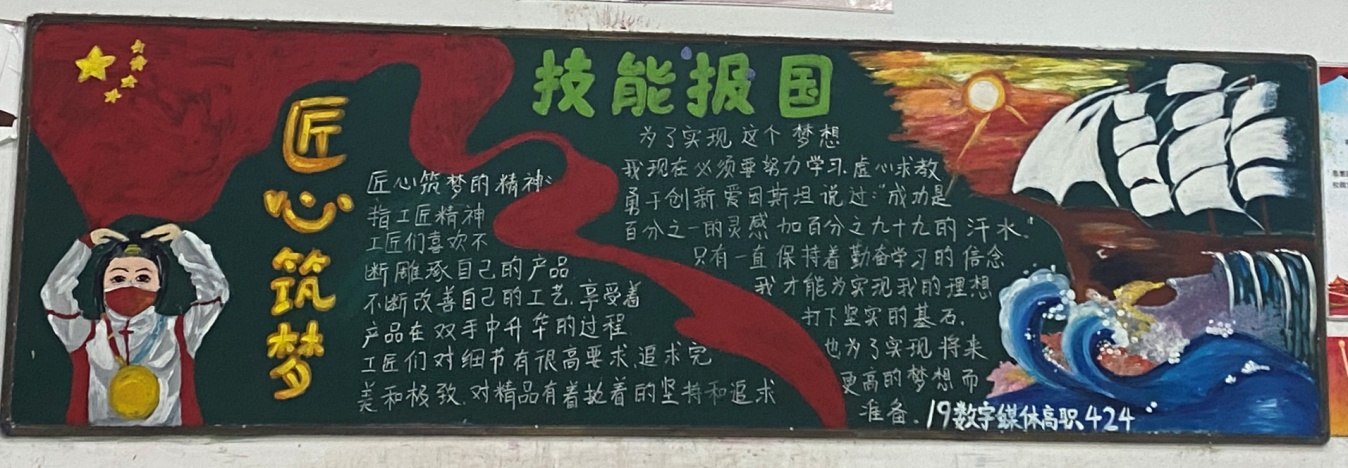 技能报国
匠心筑梦
匠心筑梦的精神:
指工匠精神
工匠们喜欢不
断雕琢自己的产品
不断改善自己的工艺.享受着
产品在双手中升华的过程
工匠们对细节有很高要求.追求完
美和极致.对精品有着执着的坚持和追求
为了实现这个梦想
我现在必须要努力学习.虚心求教
勇于创新.爱因斯坦说过:“成功是
百分之一的灵感加百分之九十九的汗水.”
只有一直保持着勤奋学习的信念
我才能为实现我的理想
打下坚实的基石.
也为了实现将来
更高的梦想而
准备.
19数字媒体高职424